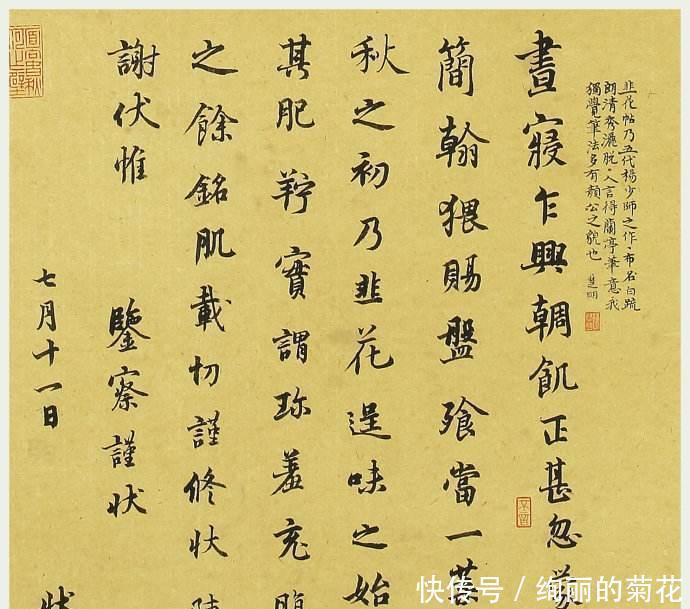 韭花帖乃五代楊少師之作布白疏
朗清秀灑脫人言得蘭亭筆意我
獨覺筆法多有顏公之貌也
晝寢乍興輖飢正甚忽
簡翰猥賜盤飧當一葉
秋之初乃韭花逞味之始
其肥羜實謂珍羞充腹
之餘銘肌載切謹修狀陳
謝伏惟
鑒察謹狀
七月十一日
狀
快传号／绚丽的菊花